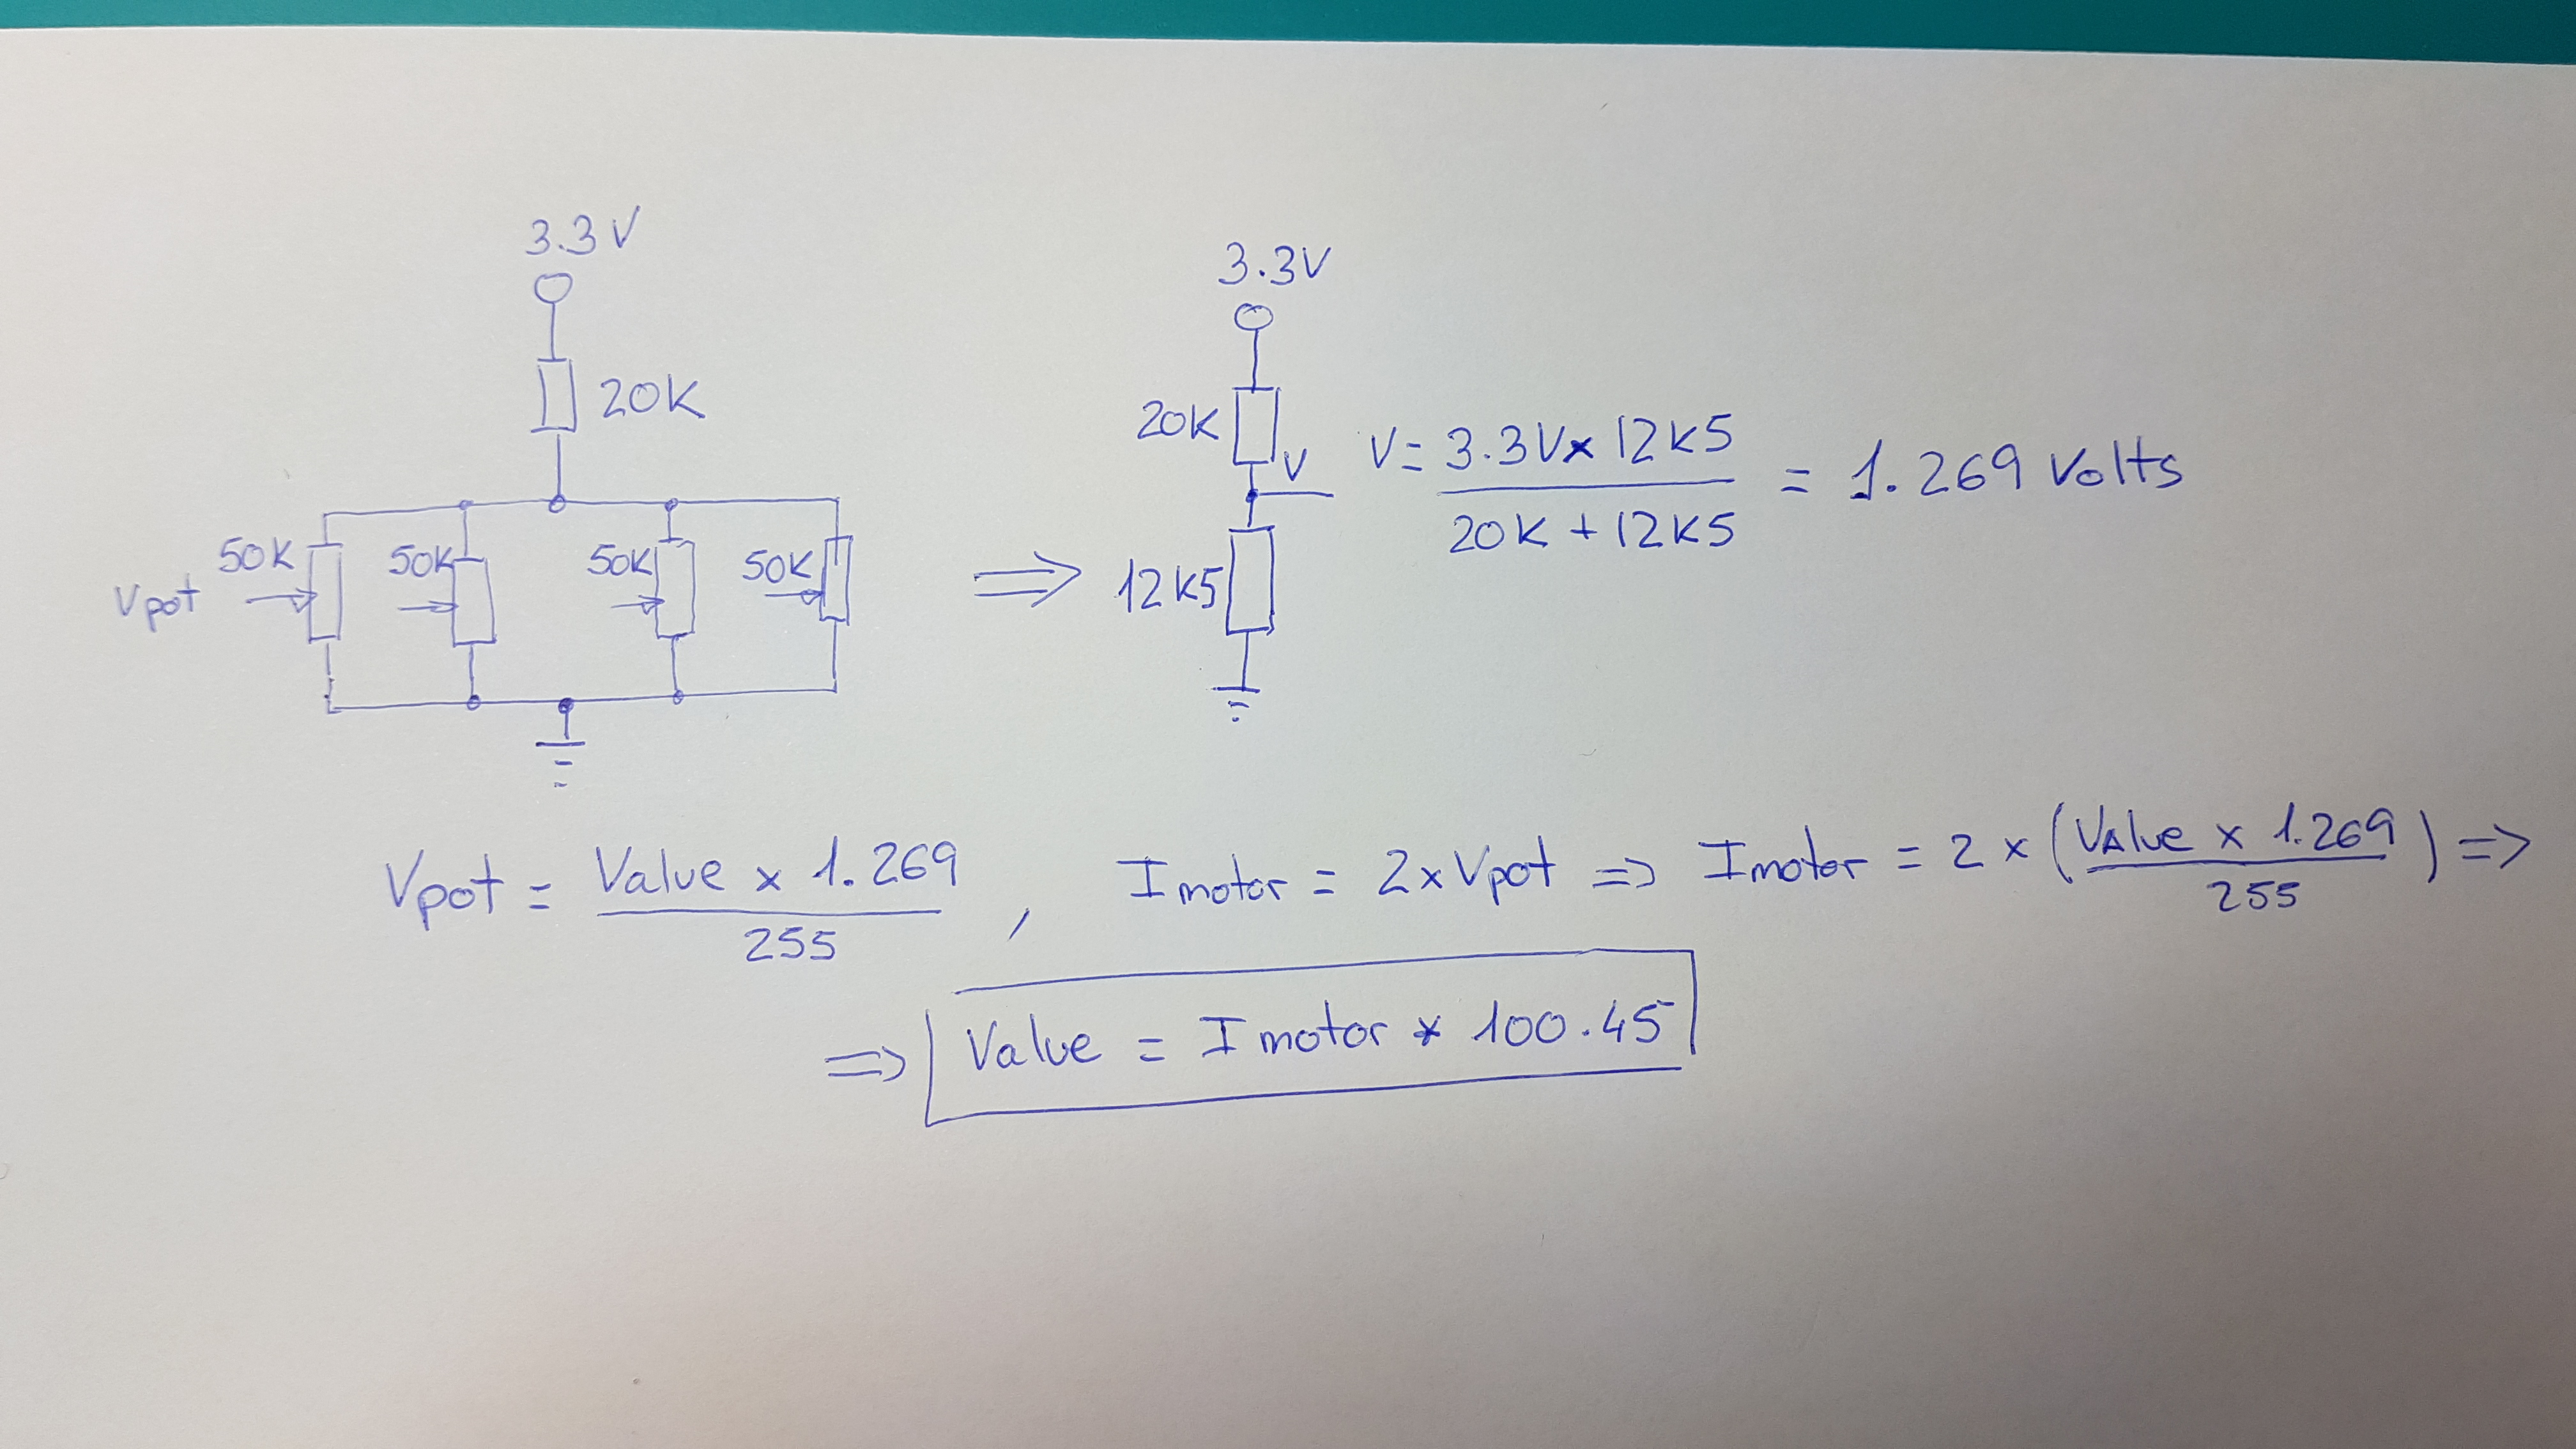 3.3V
20K
50K 50K 50K 50K
Vpot
3.3V
20K
V
12K5
V = 3.3V x 12K5 / 20K + 12K5 = 1.269 Volts
Vpot = Value x 1.269 / 255 , Imotor = 2 x Vpot => Imotor = 2 x (Value x 1.269 / 255) =>
=> Value = Imotor * 100.45